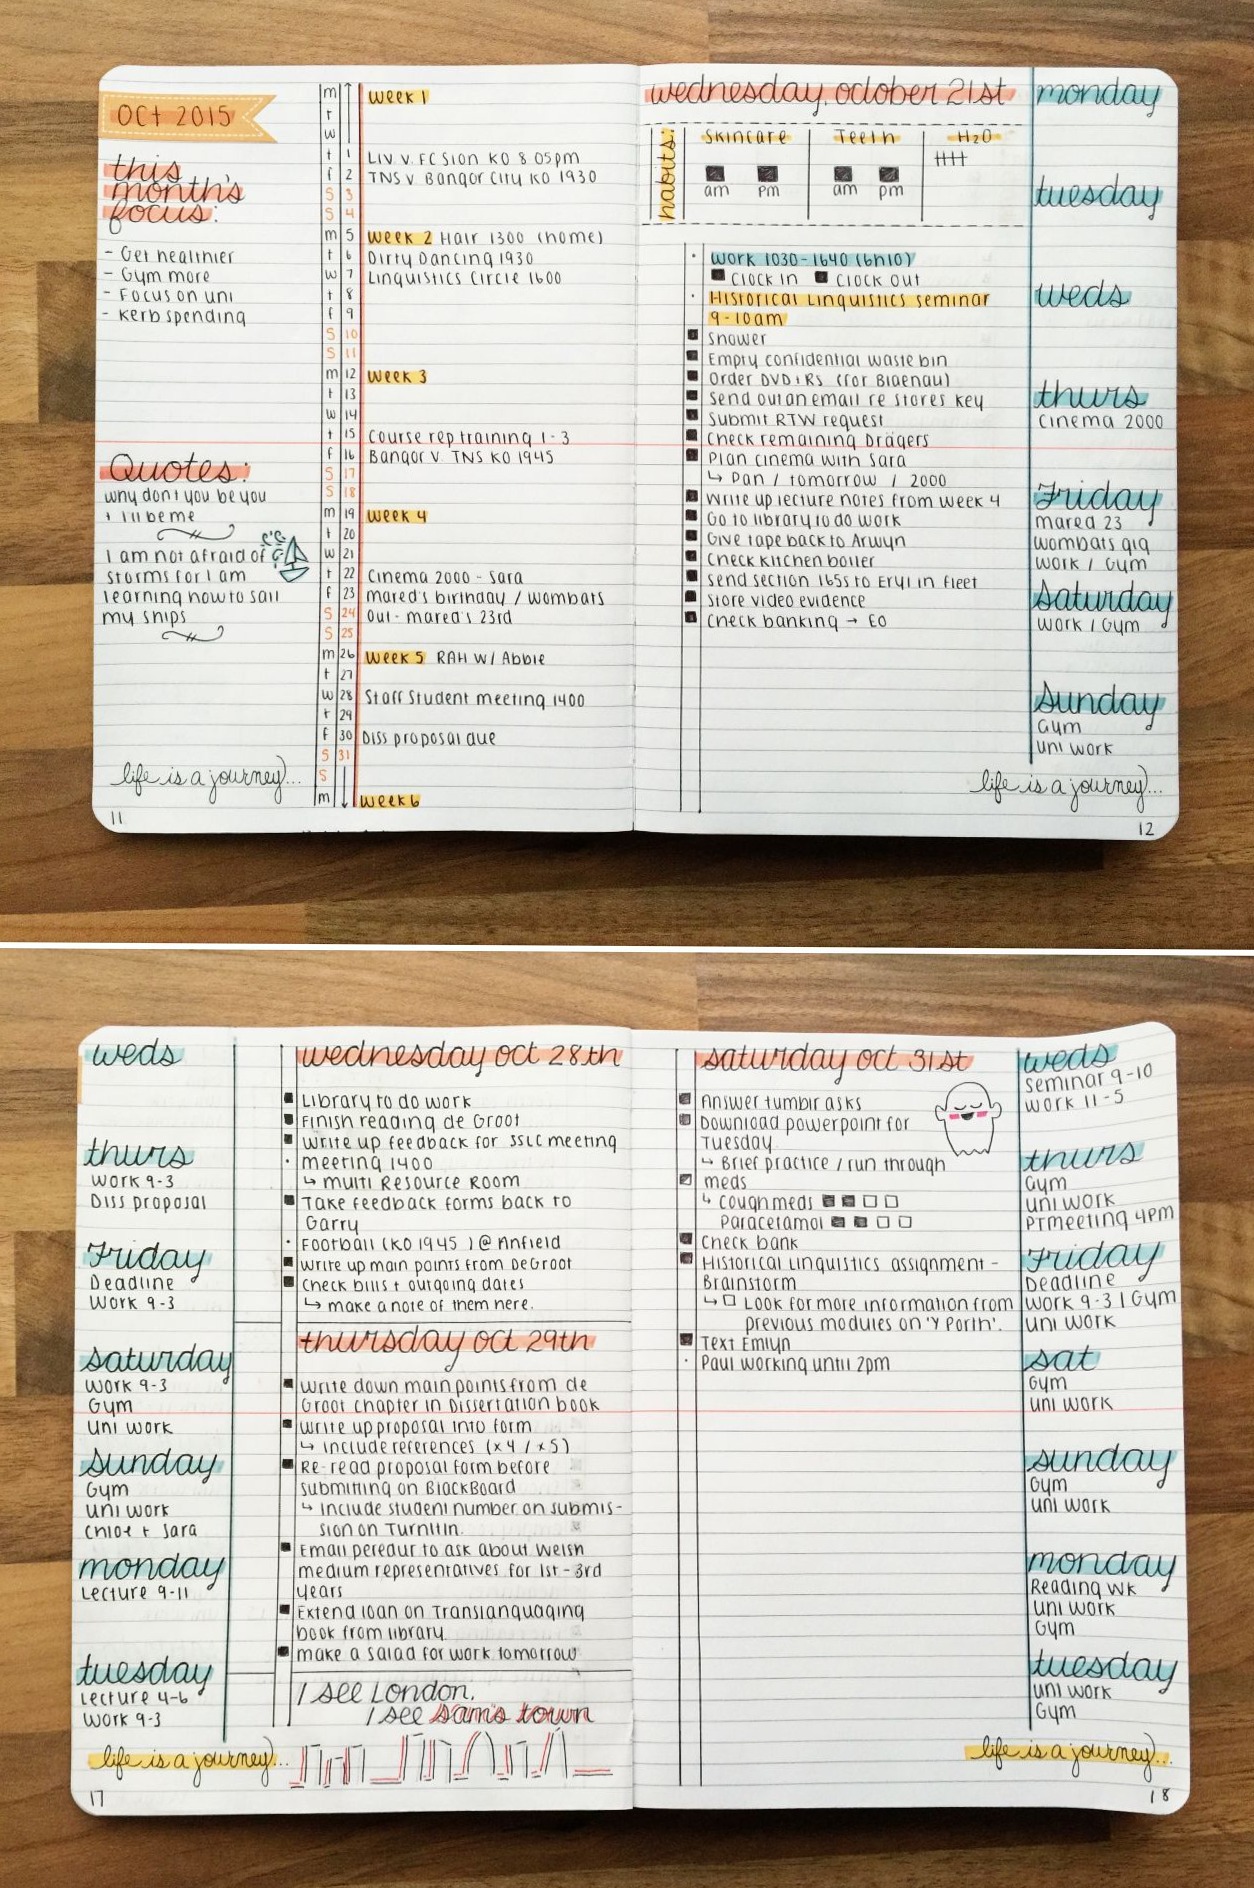 OCT 2015
this
month's
focus:
- Get healthier
- Gym more
- Focus on uni
- Kerb spending
Quotes:
Why don't you be you
+ I'll be me
I am not afraid of
storms for I am
learning how to sail
my ships
life is a journey...
11
m Week 1
t
w
t 1 LIV V. FC SION KO 8.05pm
f 2 TNS V Bangor City KO 1930
S 3
S 4
m 5 Week 2 Hair 1300 (home)
t 6 Dirty Dancing 1930
w 7 Linguistics Circle 1600
t 8
f 9
S 10
S 11
m 12 Week 3
t 13
w 14
t 15 Course rep training 1-3
f 16 Bangor V. TNS KO 1945
S 17
S 18
m 19 Week 4
t 20
w 21
t 22 Cinema 2000 - Sara
f 23 Mared's birthday / Wombats
S 24 Out - Mared's 23rd
S 25
m 26 Week 5 RAH W/ Abbie
t 27
w 28 Staff Student meeting 1400
t 29
f 30 Diss proposal due
S 31
S
m Week 6
wednesday, october 21st
habits:
Skincare Teeth H2O
am pm am pm
Work 1030-1640 (6h10)
Clock in Clock out
Historical Linguistics seminar
9-10am
Shower
Empty confidential waste bin
Order DVD+Rs (for Blaenau)
Send out an email re stores key
Submit RTW request
Check remaining Drägers
Plan cinema with Sara
↳ Pan / tomorrow / 2000
Write up lecture notes from Week 4
Go to library to do work
Give tape back to Arwyn
Check kitchen boiler
Send section 165s to Eryl in Fleet
Store video evidence
Check banking → EO
monday
tuesday
weds
thurs
Cinema 2000
Friday
Mared 23
Wombats gig
Work / Gym
Saturday
Work / Gym
Sunday
Gym
Uni work
life is a journey...
12
weds
thurs
Work 9-3
Diss proposal
Friday
Deadline
Work 9-3
Saturday
Work 9-3
Gym
Uni work
Sunday
Gym
Uni work
Chloe + Sara
monday
Lecture 9-11
tuesday
Lecture 4-6
Work 9-3
life is a journey...
17
wednesday oct 28th
Library to do work
Finish reading de Groot
Write up feedback for SSLC meeting
Meeting 1400
↳ Multi Resource Room
Take feedback forms back to
Garry
Football (KO 1945) @ Anfield
Write up main points from DeGroot
Check bills + outgoing dates
↳ make a note of them here.
thursday oct 29th
Write down main points from de
Groot chapter in Dissertation book
Write up proposal into form
↳ Include references (x4 / x5)
Re-read proposal form before
submitting on BlackBoard
↳ Include student number on submis-
sion on Turnitin.
Email Peredur to ask about Welsh
medium representatives for 1st - 3rd
years
Extend loan on Translanguaging
book from library.
Make a salad for work tomorrow
I see London,
I see Sam's Town
saturday oct 31st
Answer tumblr asks
Download powerpoint for
Tuesday
↳ Brief practice / run through
Meds
↳ Cough meds
Paracetamol
Check bank
Historical Linguistics assignment -
Brainstorm
↳ Look for more information from
previous modules on 'Y Porth'.
Text Emlyn
Paul working until 2pm
weds
Seminar 9-10
Work 11-5
thurs
Gym
Uni work
PT meeting 4pm
Friday
Deadline
Work 9-3 / Gym
Uni work
sat
Gym
Uni work
Sunday
Gym
Uni work
monday
Reading wk
Uni work
Gym
tuesday
Uni work
Gym
life is a journey...
18